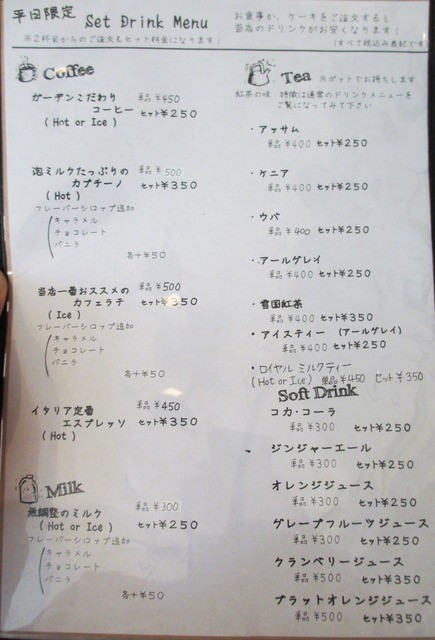 平日限定 Set Drink Menu
お食事か、ケーキをご注文すると
当店のドリンクがお安くなります！
※2杯目からのご注文もセット料金になります！
(すべて税込み表記です
Coffee
ガーデンこだわり
コーヒー
(Hot or Ice)
単品 ¥450
セット¥250
泡ミルクたっぷりの
カプチーノ
(Hot)
単品 ¥500
セット¥350
フレーバーシロップ追加
キャラメル
チョコレート
バニラ
各+¥50
当店一番おススメの
カフェラテ
(Ice)
単品 ¥500
セット¥350
フレーバーシロップ追加
キャラメル
チョコレート
バニラ
各+¥50
イタリア定番
エスプレッソ
(Hot)
単品 ¥450
セット¥350
Milk
無調整のミルク
(Hot or Ice)
単品 ¥300
セット¥250
フレーバーシロップ追加
キャラメル
チョコレート
バニラ
各+¥50
Tea ※ポットでお持ちします
紅茶の味・特徴は通常のドリンクメニューを
ご覧になってみて下さい
・アッサム
単品 ¥400 セット¥250
・ケニア
単品 ¥400 セット¥250
・ウバ
単品 ¥400 セット¥250
・アールグレイ
単品 ¥400 セット¥250
・雪国紅茶
単品 ¥400 セット¥350
・アイスティー (アールグレイ)
単品 ¥400 セット¥250
・ロイヤル ミルクティー
(Hot or Ice) 単品 ¥450 セット¥350
Soft Drink
コカ・コーラ
単品 ¥300 セット¥250
ジンジャーエール
単品 ¥300 セット¥250
オレンジジュース
単品 ¥300 セット¥250
グレープフルーツジュース
単品 ¥300 セット¥250
クランベリージュース
単品 ¥500 セット¥350
ブラットオレンジジュース
単品 ¥500 セット¥350